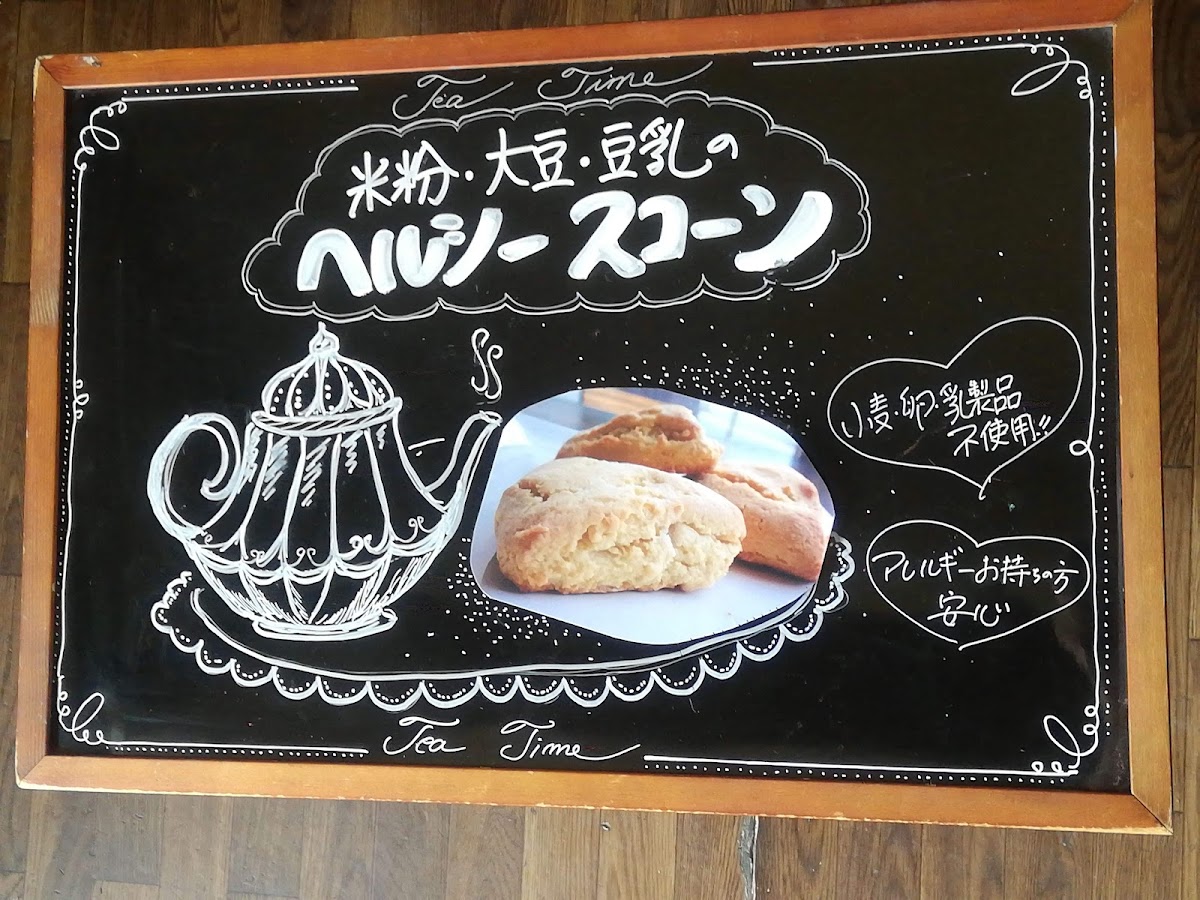 Tea Time
米粉・大豆・豆乳の
ヘルシースコーン
小麦・卵・乳製品
不使用!!
アレルギーお持ちの方
安心
Tea Time